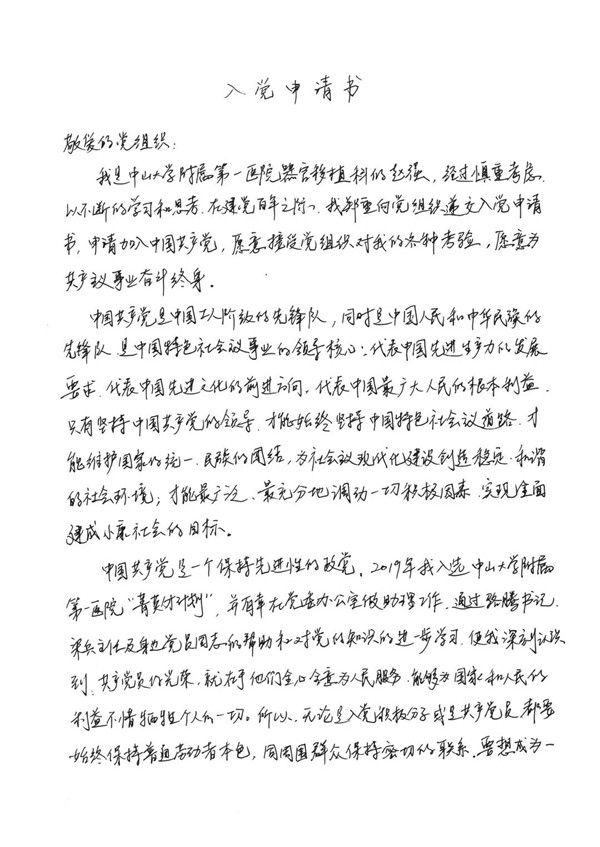 入党申请书
敬爱的党组织：
我是中山大学附属第一医院器官移植科的赵强，经过慎重考虑，
以不断的学习和思考，在建党百年之际，我郑重向党组织递交入党申请
书，申请加入中国共产党，愿意接受党组织对我的各种考验，愿意为
共产主义事业奋斗终身。
中国共产党是中国工人阶级的先锋队，同时是中国人民和中华民族的
先锋队，是中国特色社会主义事业的领导核心，代表中国先进生产力的发展
要求，代表中国先进文化的前进方向，代表中国最广大人民的根本利益。
只有坚持中国共产党的领导，才能始终坚持中国特色社会主义道路，才
能维护国家的统一、民族的团结，为社会主义现代化建设创造稳定、和谐
的社会环境；才能最广泛、最充分地调动一切积极因素，实现全面
建成小康社会的目标。
中国共产党是一个保持先进性的政党。2019年我入选中山大学附属
第一医院“菁英计划”，并有幸在党委办公室做助理工作，通过路腾书记、
梁兵主任及身边党员同志的帮助和对党的知识的进一步学习，使我深刻认识
到，共产党员的光荣，就在于他们全心全意为人民服务，能够为国家和人民的
利益不惜牺牲个人的一切。所以，无论是入党积极分子或是共产党员，都要
始终保持普通劳动者本色，同周围群众保持密切的联系。要想成为一